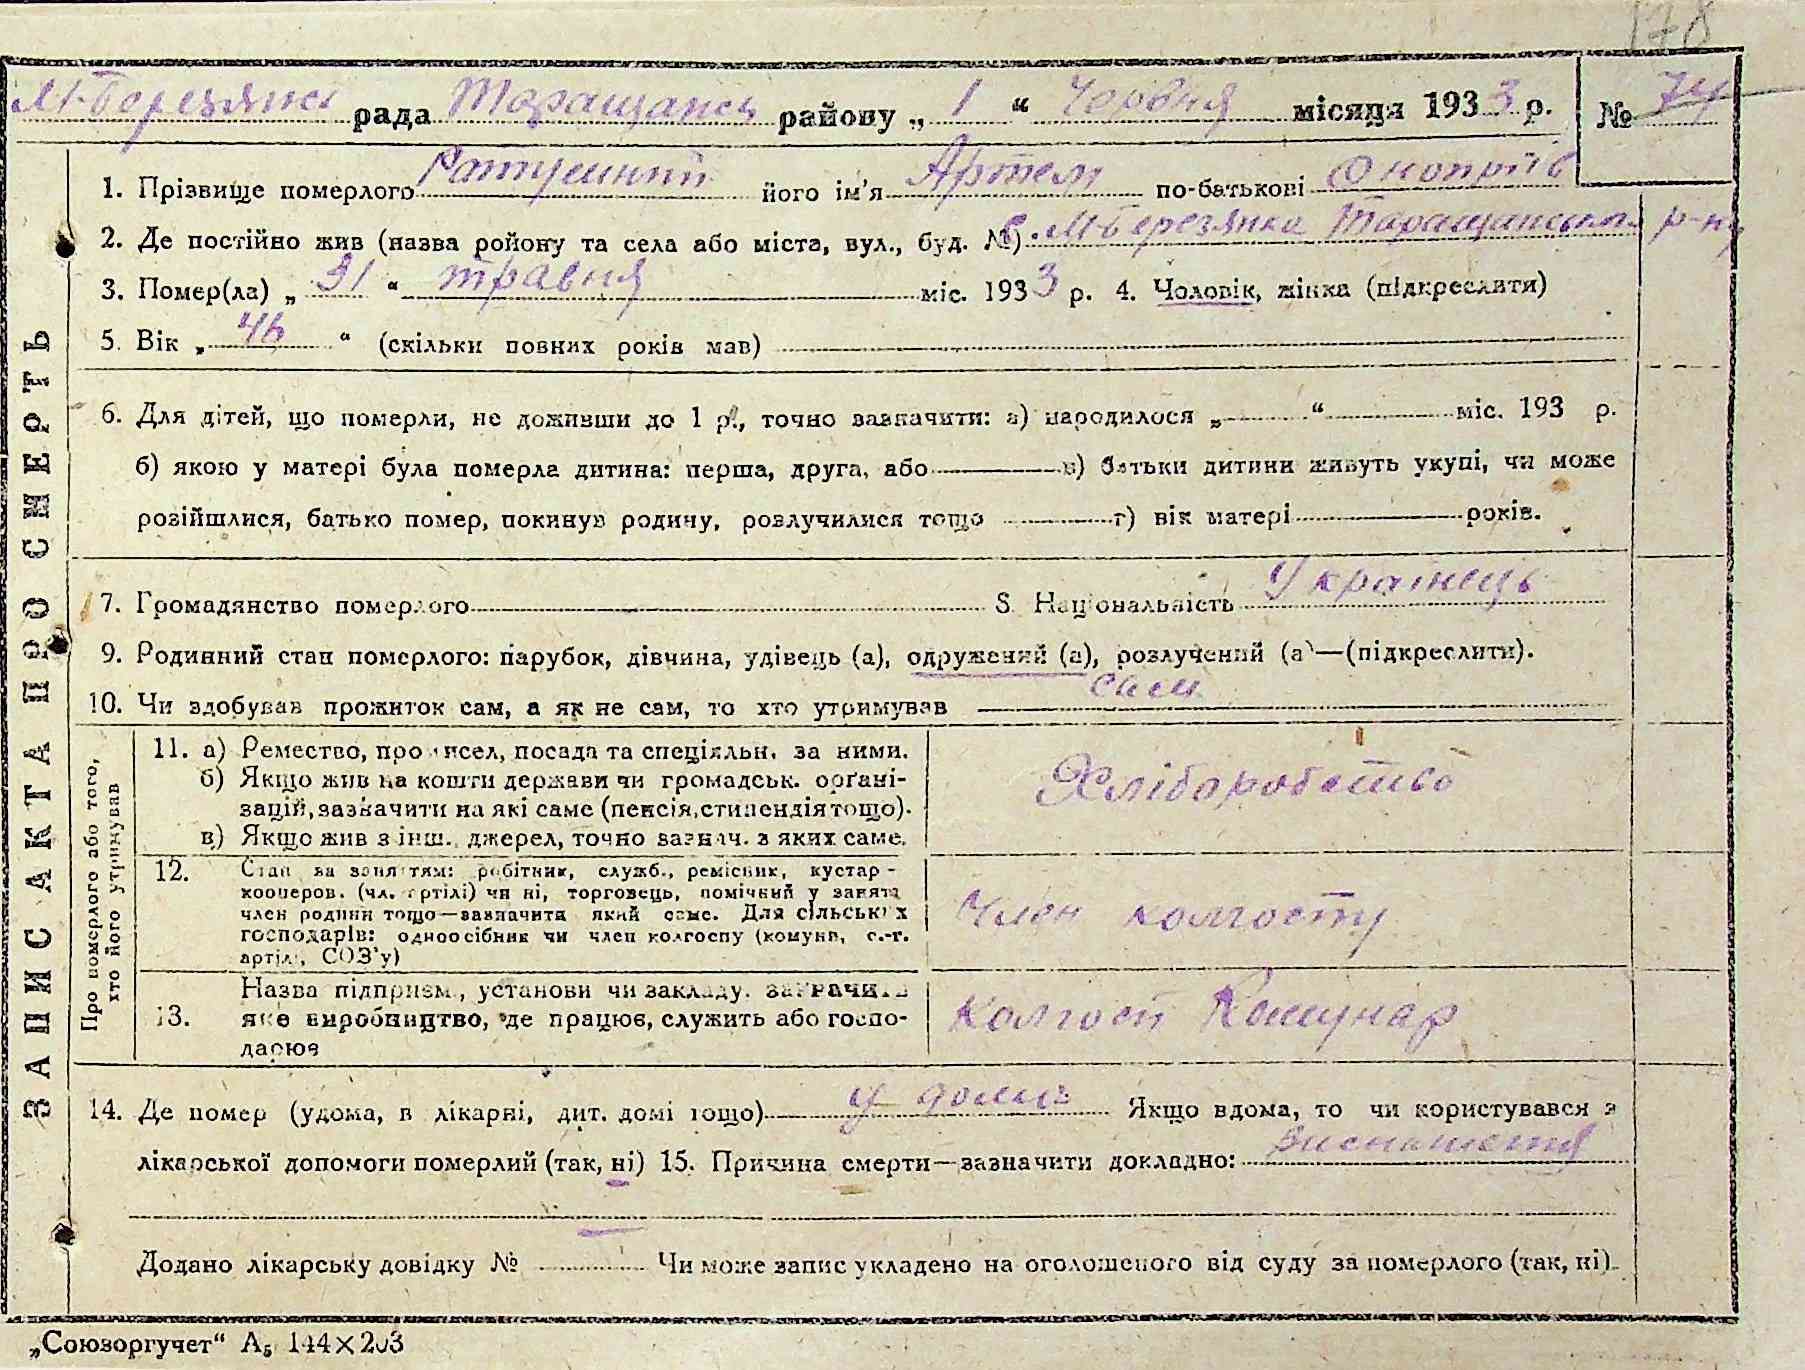 178
М-Березянсь рада Таращансь району „ 1 “ Червня місяця 1933 р. № 74
1. Прізвище померлого Ратушний його ім’я Артем по-батькові Оноприїв
2. Де постійно жив (назва ройону та села або міста, вул., буд. №) с. М-Березянка Таращанськ. р-ну
3. Помер(ла) „ 31 “ травня міс. 1933 р. 4. Чоловік, жінка (підкреслити)
5. Вік „ 46 “ (скільки повних років мав)
6. Для дітей, що померли, не доживши до 1 р., точно зазначити: а) народилося „ “ міс. 193 р.
б) якою у матері була померла дитина: перша, друга, або в) батьки дитини живуть укупі, чи може
розійшлися, батько помер, покинув родину, розлучилися тощо г) вік матері років.
7. Громадянство померлого 8. Національність Українець
9. Родинний стан померлого: парубок, дівчина, удівець (а), одружений (а), розлучений (а)—(підкреслити).
10. Чи здобував прожиток сам, а як не сам, то хто утримував сам
ЗАПИС АКТА ПРО СМЕРТЬ
Про померлого або того,
хто його утримував
11. а) Ремество, промисел, посада та спеціяльн. за ними.
б) Якщо жив на кошти держави чи громадськ. орґані-
зацій, зазначити на які саме (пенсія, стипендія тощо).
в) Якщо жив з інш. джерел, точно зазнач. з яких саме.
Хліборобство
12. Стан за заняттям: робітник, служб., ремісник, кустар-
кооперов. (чл. артілі) чи ні, торговець, помічний у занятт
член родини тощо—зазначита який саме. Для сільських
господарів: одноосібник чи член колгоспу (комуни, с.-г.
артілі, СОЗ’у)
Член колгоспу
13. Назва підприєм., установи чи закладу. зазначить
яке виробництво, де працює, служить або госпо-
дарює
Колгосп Комунар
14. Де помер (удома, в лікарні, дит. домі тощо) у дома Якщо вдома, то чи користувався з
лікарської допомоги померлий (так, ні) 15. Причина смерти—зазначити докладно: виснаження
Додано лікарську довідку № Чи може запис укладено на оголошеного від суду за померлого (так, ні).
„Союзоргучет“ А₅ 144×203